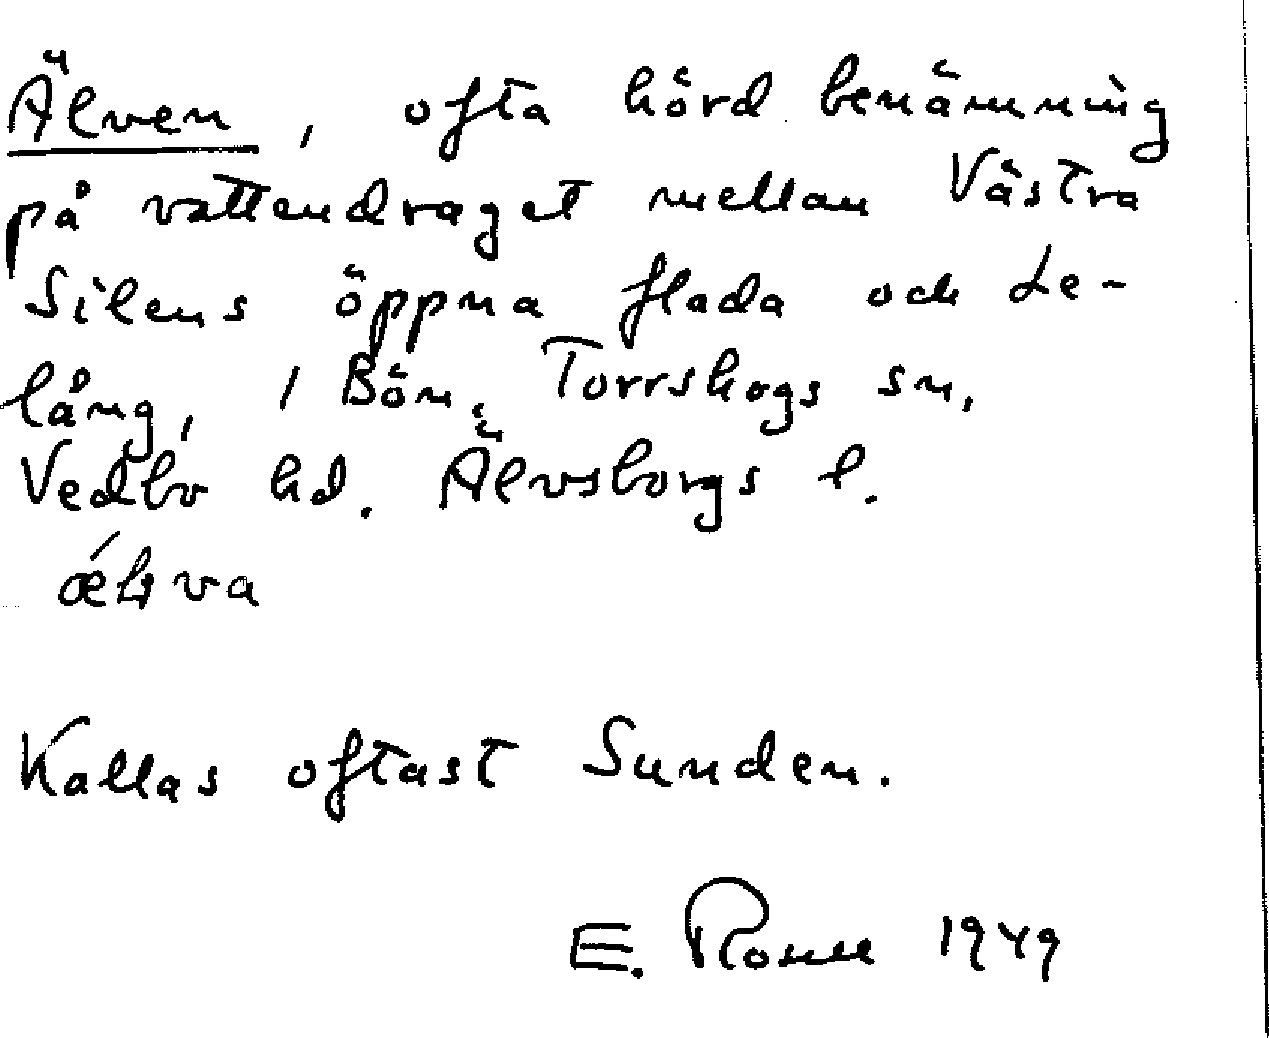 Älven, ofta hörd benämning
på vattendraget mellan Västra
Silens öppna flada och Le-
lång, i Bön, Torrskogs sn,
Vedbo hd. Älvsborgs l.
Kallas oftast Sunden.
E. 1949